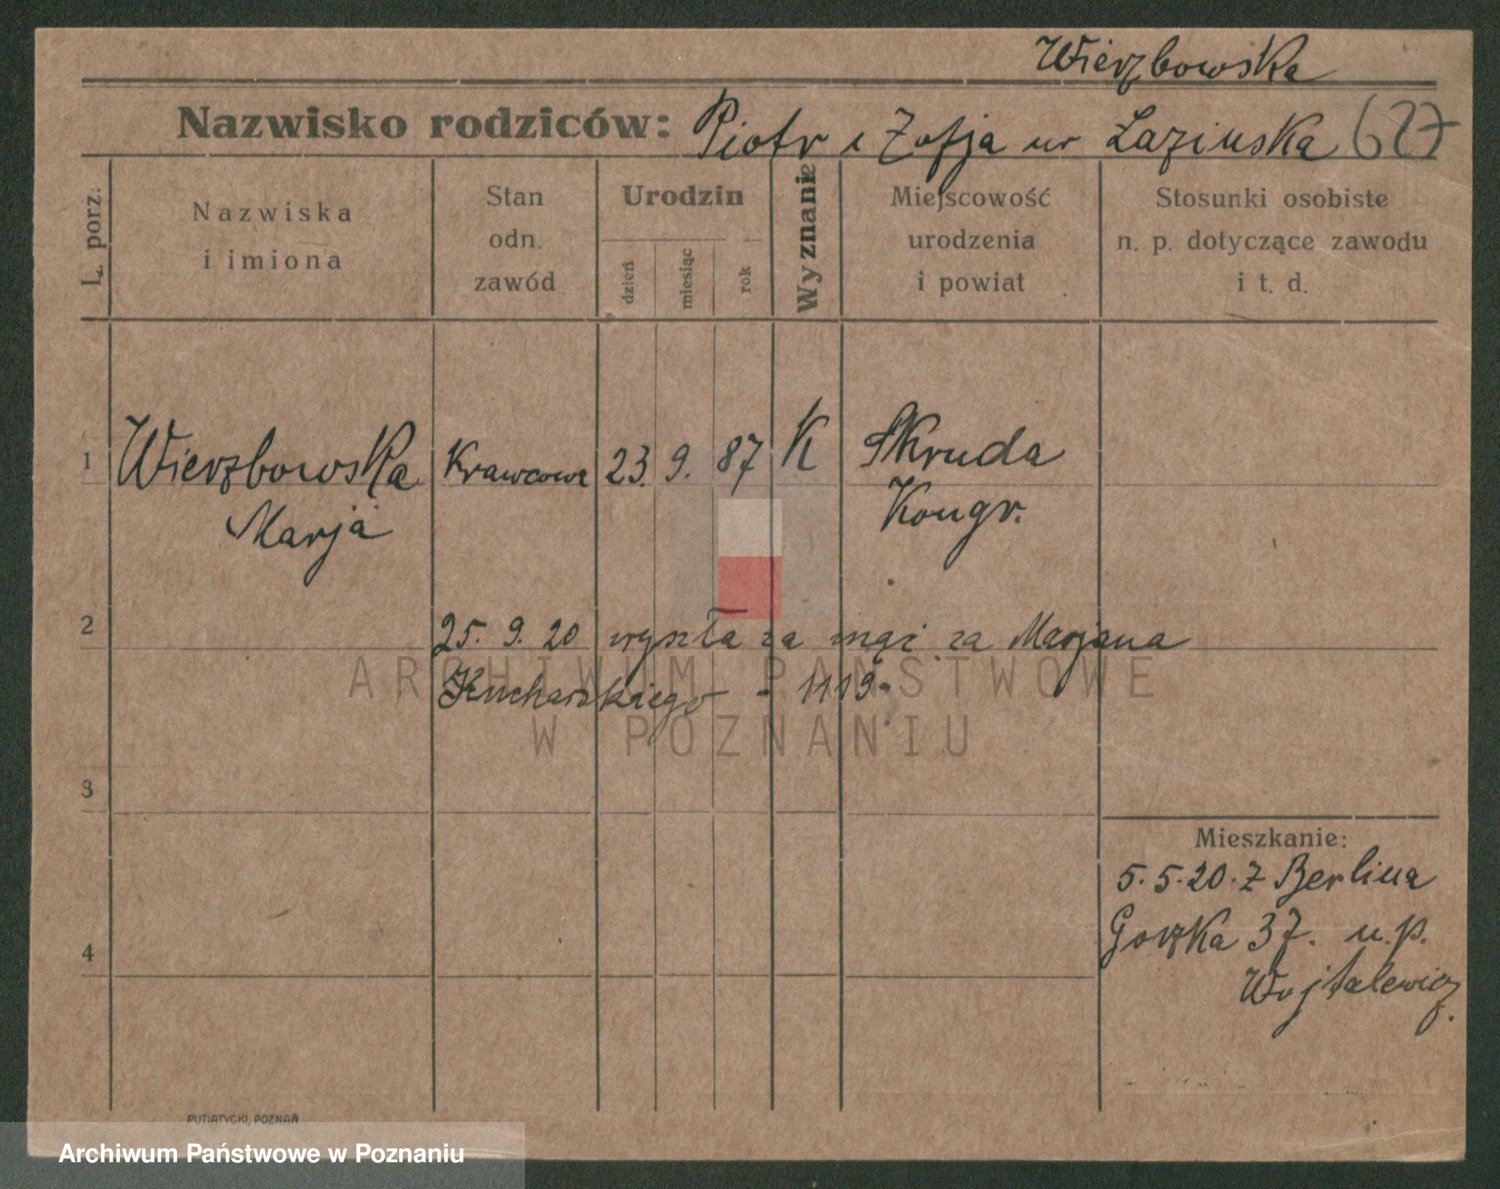 Wierzbowska
Nazwisko rodziców: Piotr i Zofja ur Lazinska 627
L. porz.
Nazwiska
i imiona
Stan
odn.
zawód
Urodzin
dzień
miesiąc
rok
Wyznanie
Miejscowość
urodzenia
i powiat
Stosunki osobiste
n. p. dotyczące zawodu
i t. d.
1 Wierzbowska Krawcowa 23. 9. 87 K Skruda
Marja Kongr.
2 25. 9. 20 wyszła za mąż za Marjana
Kucharskiego - 1119.
ARCHIWUM PAŃSTWOWE
W POZNANIU
3
Mieszkanie:
5.5.20. Z Berlina
Gorzka 37. u.p.
4
Wojtalewicz.
PUTIATYCKI, POZNAŃ
Archiwum Państwowe w Poznaniu